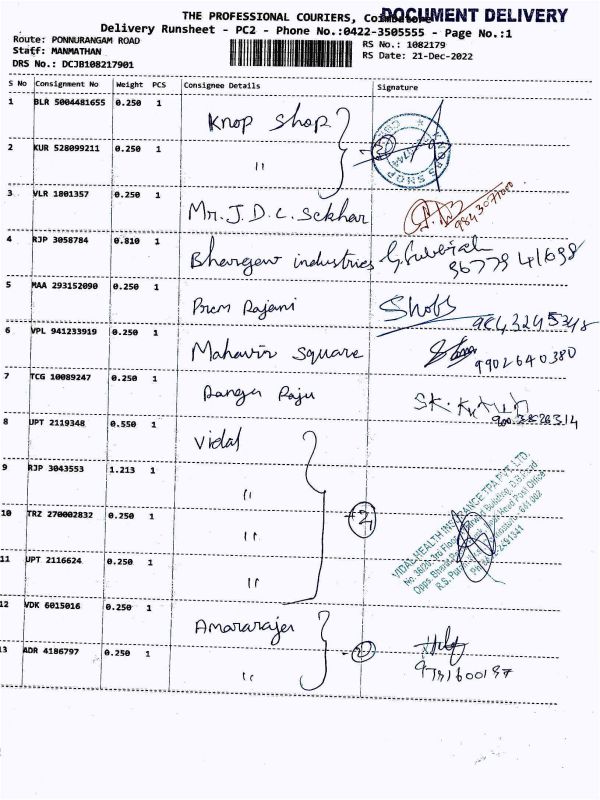 THE PROFESSIONAL COURIERS, Coimbatore
DOCUMENT DELIVERY
Delivery Runsheet - PC2 - Phone No.:0422-3505555 - Page No.:1
Route: PONNURANGAM ROAD
RS No.: 1082179
Staff: MANMATHAN
RS Date: 21-Dec-2022
DRS No.: DCJB108217901
S No Consignment No Weight PCS Consignee Details Signature
1 BLR 5004481655 0.250 1 Knop Shop
2 KUR 528099211 0.250 1 "
3 VLR 1801357 0.250 1 Mr. J. D. C. Sekhar
9843077000
4 RJP 3058784 0.810 1 Bhargav industries
5 MAA 293152090 0.250 1 Prem Rajani
6 VPL 941233919 0.250 1 Mahavir Square 9902640380
7 TCG 10089247 0.250 1 Ranga Raju
8 UPT 2119348 0.550 1 Vidal
9 RJP 3043553 1.213 1 "
10 TRZ 270002832 0.250 1 "
11 UPT 2116624 0.250 1 "
VIDAL HEALTH INSURANCE TPA PVT. LTD.
12 VDK 6015016 0.250 1 Amararaja
13 ADR 4186797 0.250 1 "